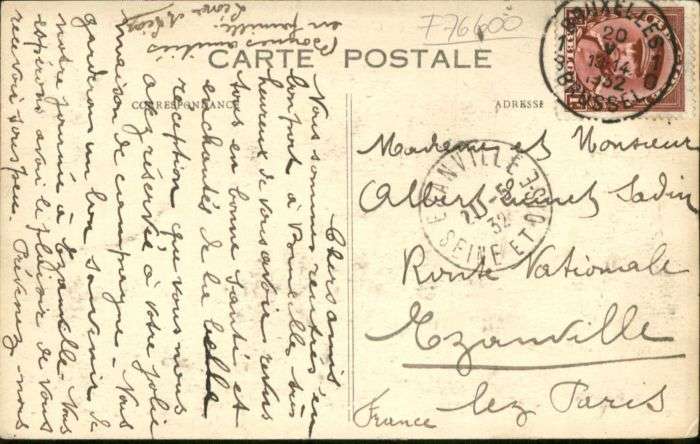 CARTE POSTALE
CORRESPONDANCE
ADRESSE
F76600
BRUXELLES
20
V
13-14
1932
BRUSSEL
EZANVILLE
21 5
32
SEINE ET OISE
Chers amis,
Nous sommes rentrés en
bon port à Bruxelles très
heureux de vous avoir revus
tous en bonne santé et
enchantés de la belle
réception que vous nous
avez réservée à votre jolie
maison de campagne. Nous
garderons un bon souvenir de
notre journée à Ezanville. Nous
espérons avoir le plaisir de vous
recevoir sous peu. Prévenez-nous
Bonnes amitiés
en famille,
Madame et Monsieur
Albert Sadin
Route Nationale
Ezanville
lez Paris
France